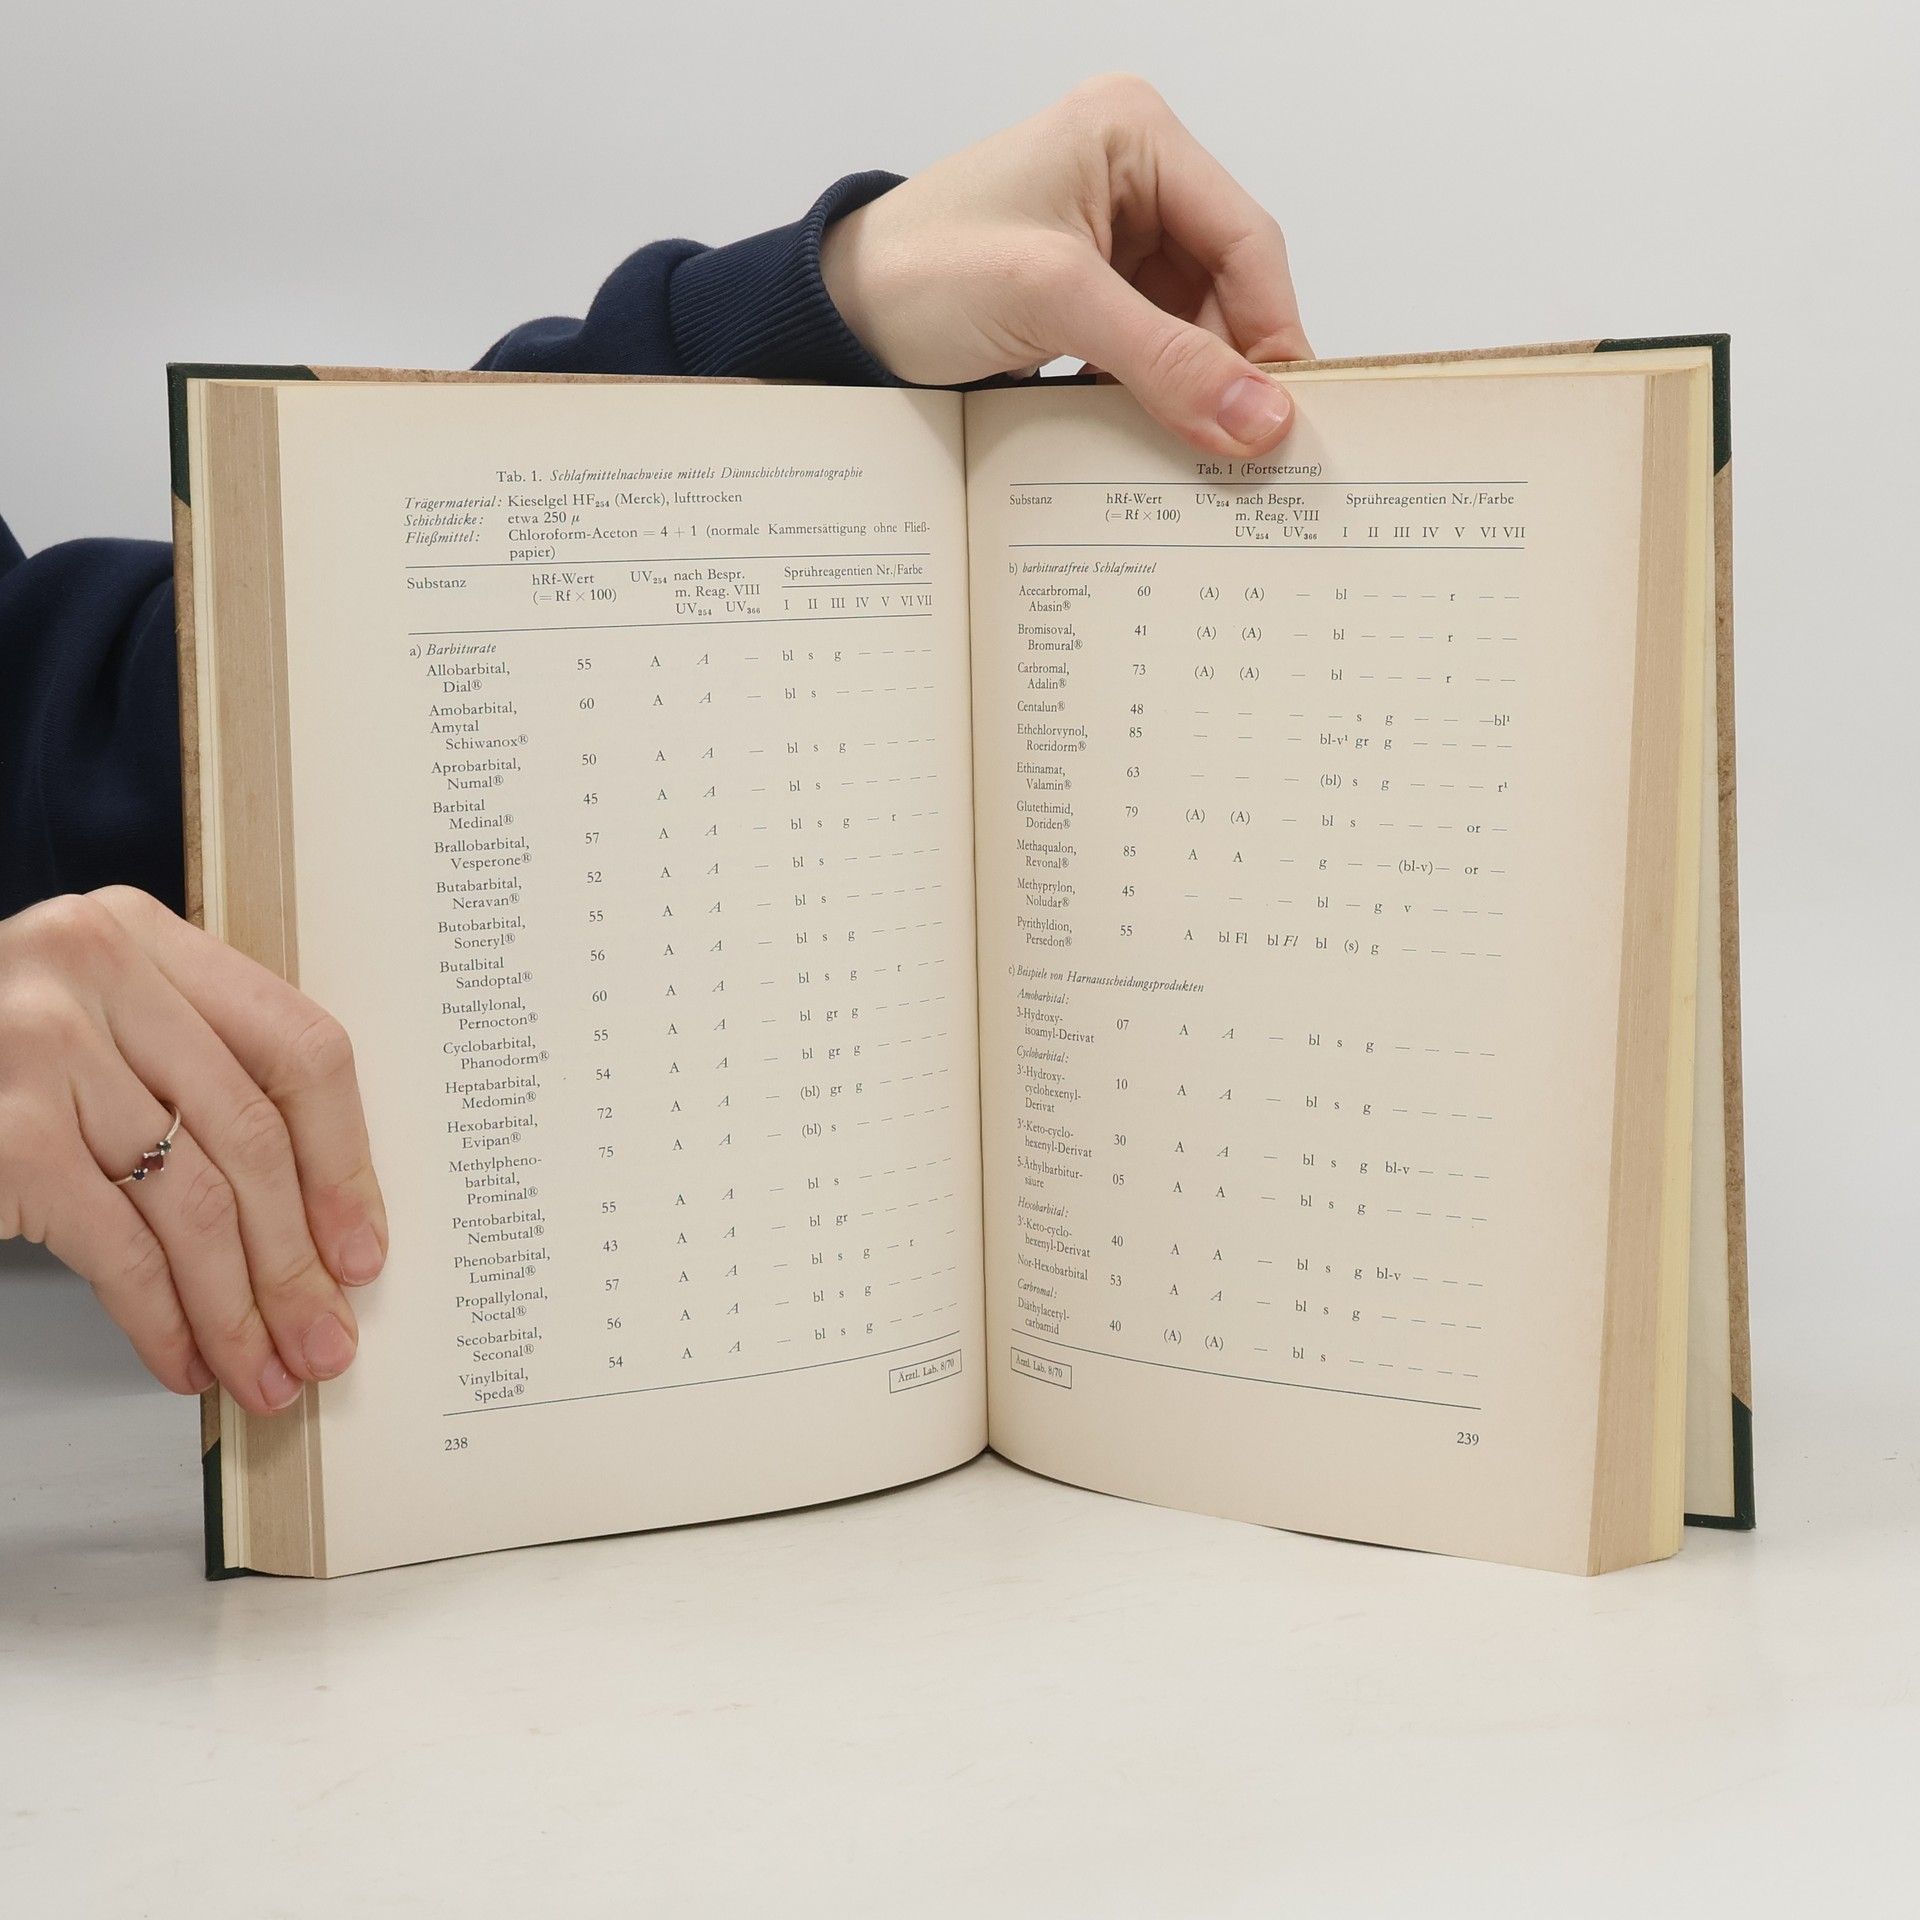 Tab. 1. Schlafmittelnachweise mittels Dünnschichtchromatographie
Trägermaterial: Kieselgel HF254 (Merck), lufttrocken
Schichtdicke: etwa 250 μ
Fließmittel: Chloroform-Aceton = 4 + 1 (normale Kammersättigung ohne Fließ-
papier)
Substanz hRf-Wert UV254 nach Bespr. Sprühreagentien Nr./Farbe
(= Rf × 100) m. Reag. VIII
UV254 UV366 I II III IV V VI VII
a) Barbiturate
Allobarbital, 55 A A — bl s g — — — —
Dial®
Amobarbital, 60 A A — bl s — — — — —
Amytal
Schiwanox®
Aprobarbital, 50 A A — bl s g — — — —
Numal®
Barbital 45 A A — bl s — — — — —
Medinal®
Brallobarbital, 57 A A — bl s g — r — —
Vesperone®
Butabarbital, 52 A A — bl s — — — — —
Neravan®
Butobarbital, 55 A A — bl s — — — — —
Soneryl®
Butalbital 56 A A — bl s g — — — —
Sandoptal®
Butallylonal, 60 A A — bl s g — r — —
Pernocton®
Cyclobarbital, 55 A A — bl gr g — — — —
Phanodorm®
Heptabarbital, 54 A A — bl gr g — — — —
Medomin®
Hexobarbital, 72 A A — (bl) gr g — — — —
Evipan®
Methylpheno- 75 A A — (bl) s — — — — —
barbital,
Prominal®
Pentobarbital, 55 A A — bl s — — — — —
Nembutal®
Phenobarbital, 43 A A — bl gr — — — — —
Luminal®
Propallylonal, 57 A A — bl s g — r —
Noctal®
Secobarbital, 56 A A — bl s g — — — —
Seconal®
Vinylbital, 54 A A — bl s g — — — —
Speda®
Ärztl. Lab. 8/70
238
Tab. 1 (Fortsetzung)
Substanz hRf-Wert UV254 nach Bespr. Sprühreagentien Nr./Farbe
(= Rf × 100) m. Reag. VIII
UV254 UV366 I II III IV V VI VII
b) barbituratfreie Schlafmittel
Acecarbromal, 60 (A) (A) — bl — — — r — —
Abasin®
Bromisoval, 41 (A) (A) — bl — — — r — —
Bromural®
Carbromal, 73 (A) (A) — bl — — — r — —
Adalin®
Centalun® 48 — — — — s g — — —bl¹
Ethchlorvynol, 85 — — — bl-v¹ gr g — — — —
Roeridorm®
Ethinamat, 63 — — — (bl) s g — — — r¹
Valamin®
Glutethimid, 79 (A) (A) — bl s — — — or —
Doriden®
Methaqualon, 85 A A — g — — (bl-v)— or —
Revonal®
Methyprylon, 45 — — — bl — g v — — —
Noludar®
Pyrithyldion, 55 A bl Fl bl Fl bl (s) g — — — —
Persedon®
c) Beispiele von Harnausscheidungsprodukten
Amobarbital:
3-Hydroxy- 07 A A — bl s g — — — —
isoamyl-Derivat
Cyclobarbital:
3'-Hydroxy- 10 A A — bl s g — — — —
cyclohexenyl-
Derivat
3'-Keto-cyclo- 30 A A — bl s g bl-v — — —
hexenyl-Derivat
5-Äthylbarbitur- 05 A A — bl s g — — — —
säure
Hexobarbital:
3'-Keto-cyclo- 40 A A — bl s g bl-v — — —
hexenyl-Derivat
Nor-Hexobarbital 53 A A — bl s g — — — —
Carbromal:
Diäthylacetyl- 40 (A) (A) — bl s — — — — —
carbamid
Ärztl. Lab. 8/70
239